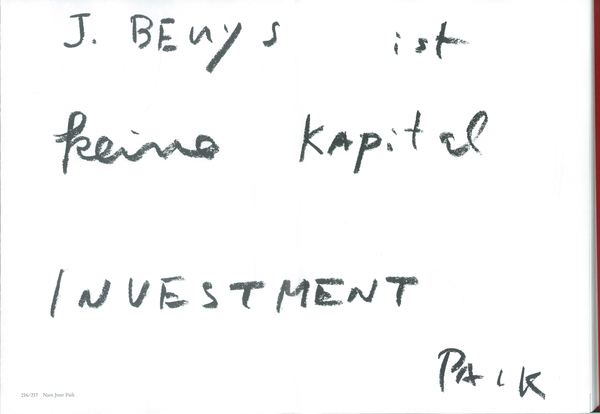 J. BEUYS ist
keine Kapital
INVESTMENT
PAIK
216/217 Nam June Paik